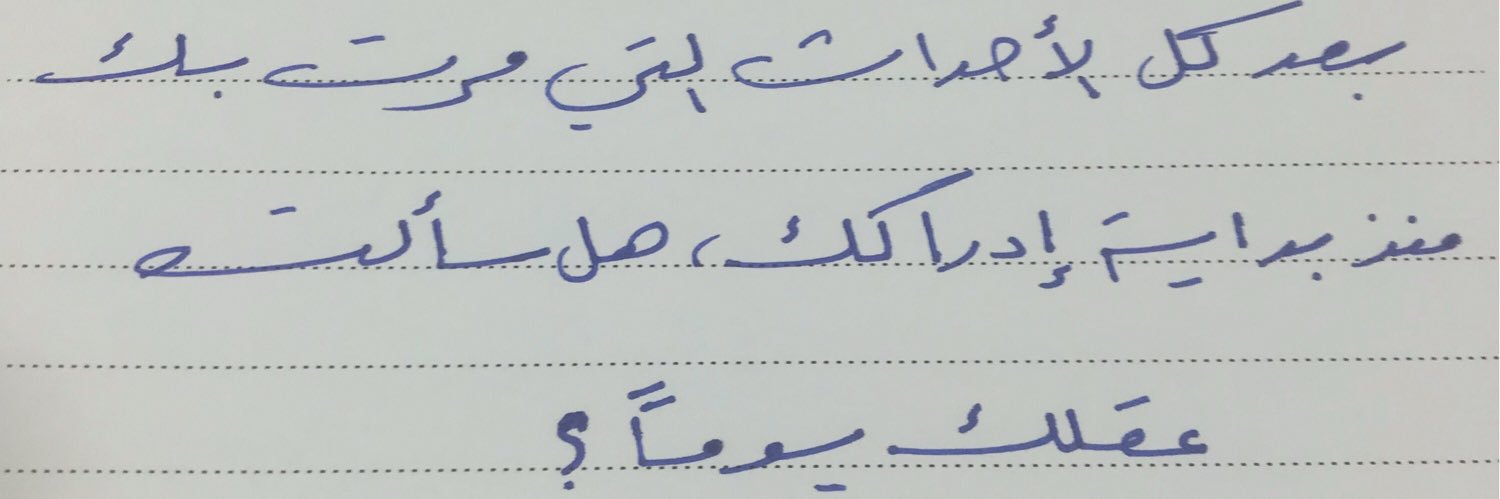 بعد كل الأحداث التي مرت بك
منذ بداية إدراكك، هل سألت
عقلك يوماً؟